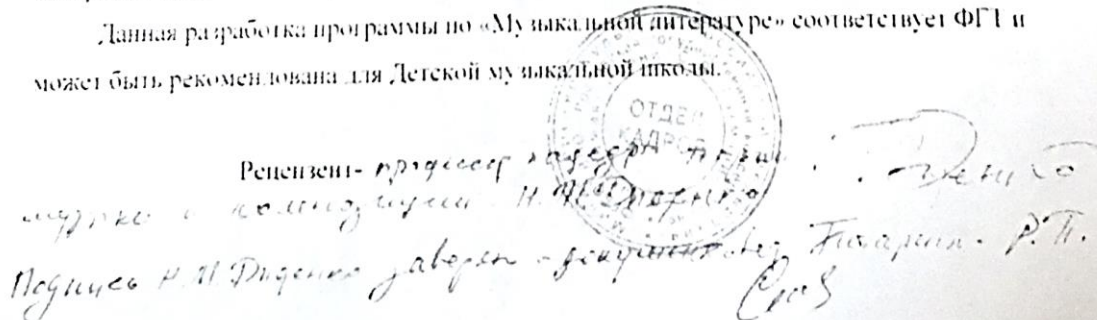 Данная разработка программы по «Музыкальной литературе» соответствует ФГТ и
может быть рекомендована для Детской музыкальной школы.
ОТДЕЛ
КАДРОВ
Рецензент- профессор кафедры теории
музыки и композиции Н.М. Диденко
Подпись Н.М Диденко заверяю - документовед Р.П.